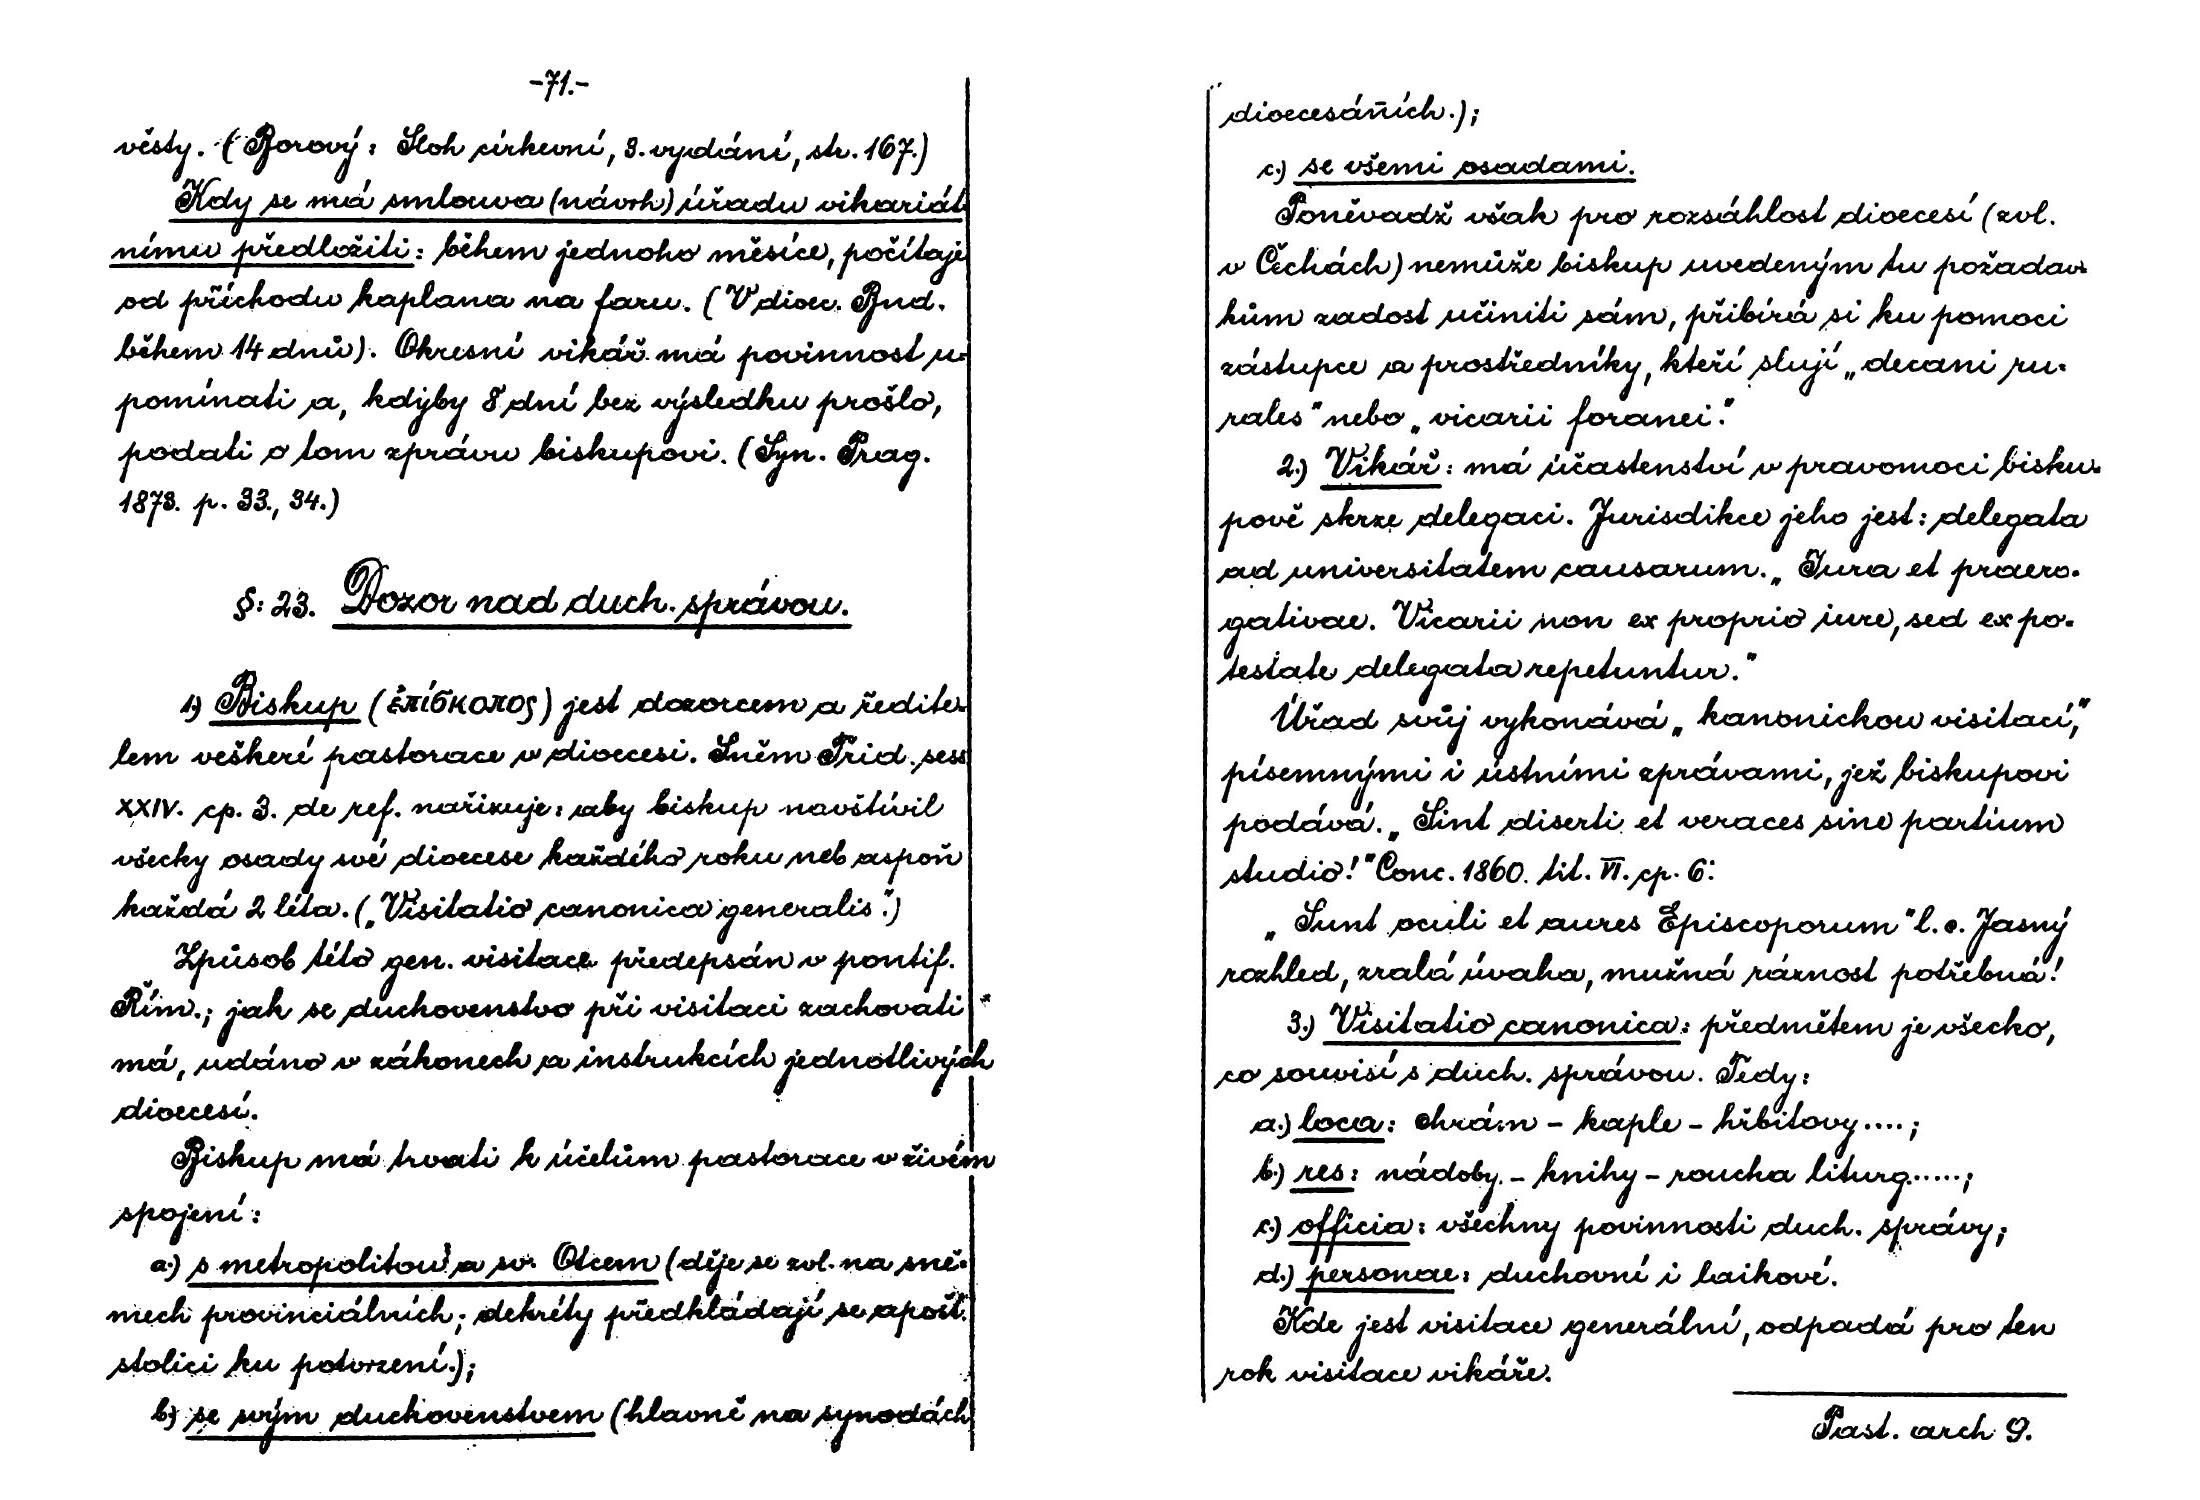 -71.-
věsty. (Borový: Sloh církevní, 3. vydání, str. 167.)
Kdy se má smlouva (návrh) úřadu vikariát-
nímu předložiti: během jednoho měsíce, počítaje
od příchodu kaplana na faru. (V dioec. Bud.
během 14 dnů). Okresní vikář má povinnost u-
pomínati a, kdyby 8 dní bez výsledku prošlo,
podati o tom zprávu biskupovi. (Syn. Prag.
1873. p. 33., 34.)
§: 23. Dozor nad duch. správou.
1.) Biskup (ἐπίσκοπος) jest dozorcem a ředite-
lem veškeré pastorace v dioecesi. Sněm Trid. sess
XXIV. cp. 3. de ref. nařizuje: aby biskup navštívil
všecky osady své dioecese každého roku neb aspoň
každá 2 léta. („Visitatio canonica generalis".)
Způsob této gen. visitace předepsán v pontif.
Řím.; jak se duchovenstvo při visitaci zachovati
má, udáno v zákonech a instrukcích jednotlivých
dioecesí.
Biskup má trvati k účelům pastorace v živém
spojení:
a.) s metropolitou a sv. Otcem (děje se zvl. na sně-
mech provinciálních; dekréty předkládají se apošt.
stolici ku potvrzení.);
b) se svým duchovenstvem (hlavně na synodách
dioecesáních.);
c.) se všemi osadami.
Poněvadž však pro rozsáhlost dioecesí (zvl.
v Čechách) nemůže biskup uvedeným tu požadav-
kům zadost učiniti sám, přibírá si ku pomoci
zástupce a prostředníky, kteří slují „decani ru-
rales" nebo „vicarii foranei."
2.) Vikář: má účastenství v pravomoci bisku-
pově skrze delegaci. Jurisdikce jeho jest: delegata
ad universitatem causarum. „Jura et praero-
gativae. Vicarii non ex proprio iure, sed ex po-
testate delegata repetuntur."
Úřad svůj vykonává „kanonickou visitací,"
písemnými i ústními zprávami, jež biskupovi
podává. „Sint diserti et veraces sine partium
studio!" Conc. 1860. tit. VI. cp. 6:
„Sunt oculi et aures Episcoporum" l. c. Jasný
rozhled, zralá úvaha, mužná ráznost potřebná!
3.) Visitatio canonica: předmětem je všecko,
co souvisí s duch. správou. Tedy:
a.) loca: chrám - kaple - hřbitovy....;
b.) res: nádoby. - knihy - roucha liturg.....;
c.) officia: všechny povinnosti duch. správy;
d.) personae: duchovní i laikové.
Kde jest visitace generální, odpadá pro ten
rok visitace vikáře.
Past. arch 9.